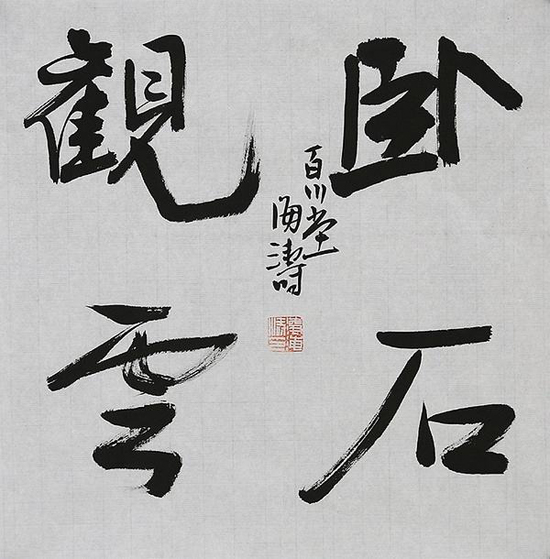 卧石
觀雲
百川堂
海濤